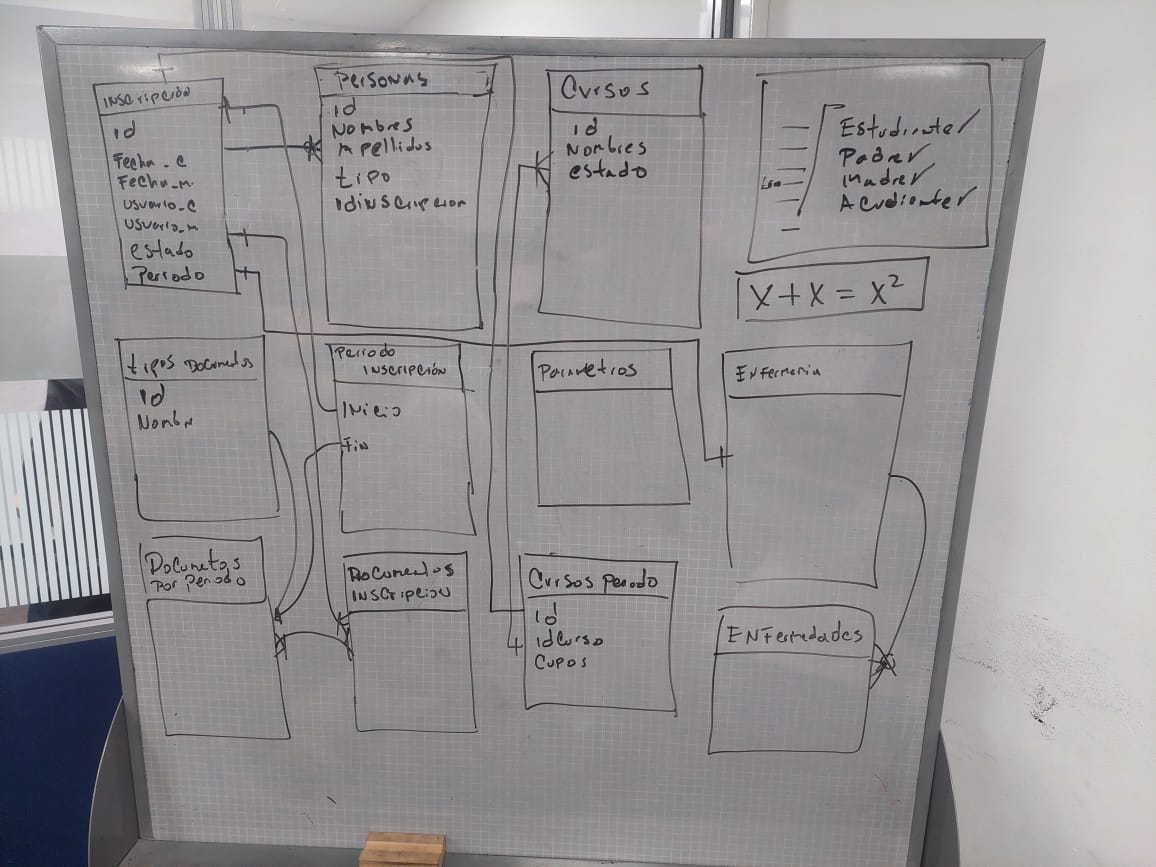 Inscripción
id
Fecha_c
Fecha_m
usuario_c
usuario_m
estado
Periodo
Personas
id
Nombres
Apellidos
tipo
idinscripcion
Cursos
id
Nombres
estado
Estudiante
Padre
Madre
Acudiente
X + X = X²
tipos Documentos
id
Nombre
Periodo
Inscripción
Inicio
Fin
Parametros
Enfermeria
Documetos
por periodo
Documentos
Inscripcion
Cursos periodo
id
idcurso
Cupos
Enfermedades